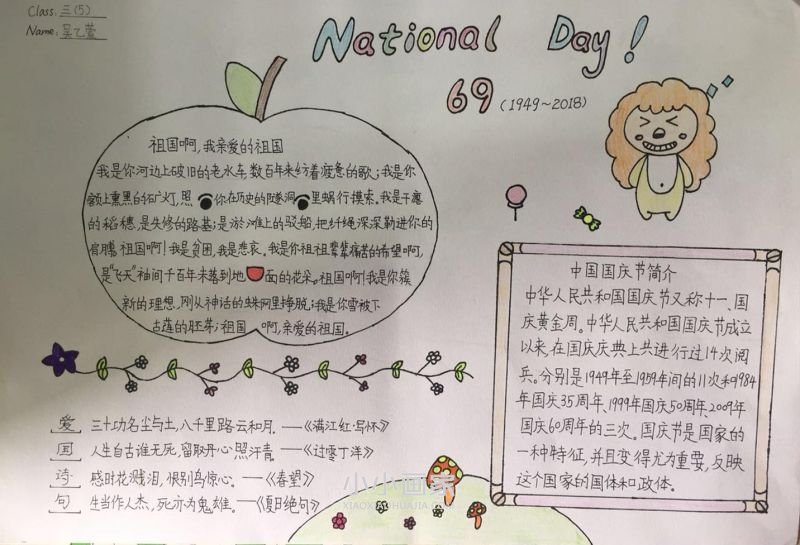 Class: 三(5)
Name: 吴乙萱
National Day!
69 (1949~2018)
祖国啊,我亲爱的祖国
我是你河边上破旧的老水车,数百年来纺着疲惫的歌;我是你
额上熏黑的矿灯,照你在历史的隧洞里蜗行摸索。我是干瘪
的稻穗,是失修的路基;是淤滩上的驳船,把纤绳深深勒进你的
肩膊,祖国啊!我是贫困,我是悲哀。我是你祖祖辈辈痛苦的希望啊,
是"飞天"袖间千百年未落到地面的花朵。祖国啊!我是你簇
新的理想,刚从神话的蛛网里挣脱;我是你雪被下
古莲的胚芽;祖国啊,亲爱的祖国。
中国国庆节简介
中华人民共和国国庆节又称十一、国
庆黄金周。中华人民共和国国庆节成立
以来,在国庆庆典上共进行过14次阅
兵。分别是1949年至1959年间的11次和1984
年国庆35周年、1999年国庆50周年、2009年
国庆60周年的三次。国庆节是国家的
一种特征,并且变得尤为重要,反映
这个国家的国体和政体。
爱 三十功名尘与土,八千里路云和月.——《满江红·写怀》
国 人生自古谁无死,留取丹心照汗青.——《过零丁洋》
诗 感时花溅泪,恨别鸟惊心。——《春望》
句 生当作人杰,死亦为鬼雄。——《夏日绝句》
小小画家
XIAOXIAOHUAJIA.COM